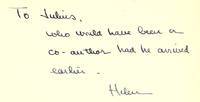 To Julius,
who would have been a
co-author had he arrived
earlier.
Helen